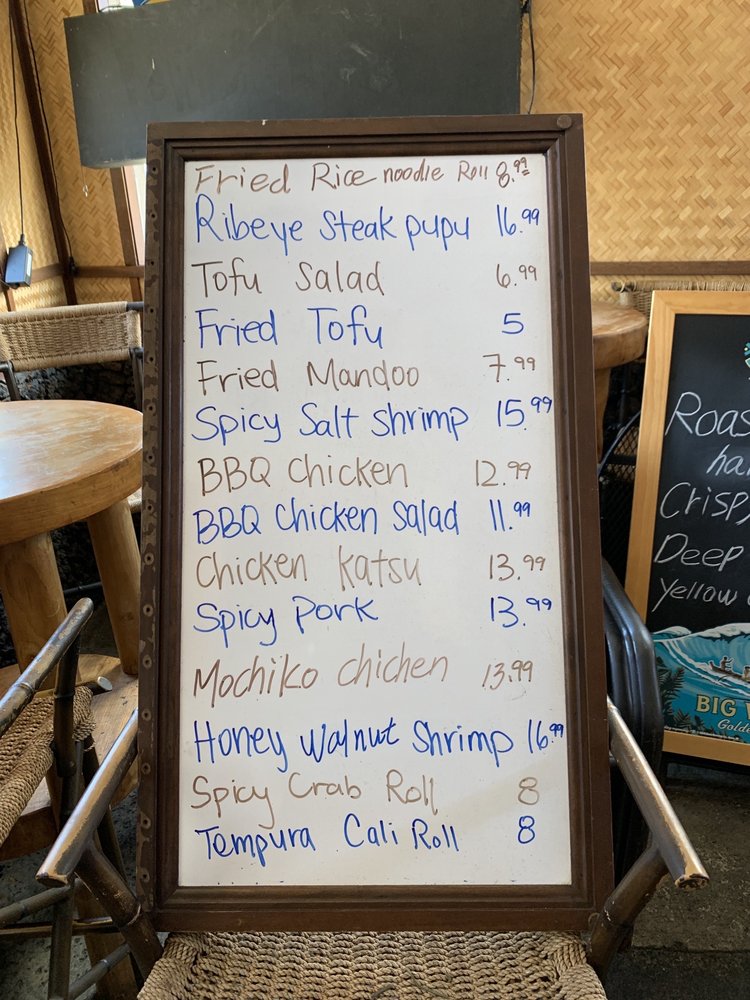 Fried Rice noodle Roll 8.99
Ribeye Steak pupu 16.99
Tofu Salad 6.99
Fried Tofu 5
Fried Mandoo 7.99
Spicy Salt Shrimp 15.99
BBQ Chicken 12.99
BBQ Chicken Salad 11.99
Chicken Katsu 13.99
Spicy Pork 13.99
Mochiko chichen 13.99
Honey Walnut Shrimp 16.99
Spicy Crab Roll 8
Tempura Cali Roll 8
Roas
ha
Crisp
Deep
Yellow
BIG
Golde